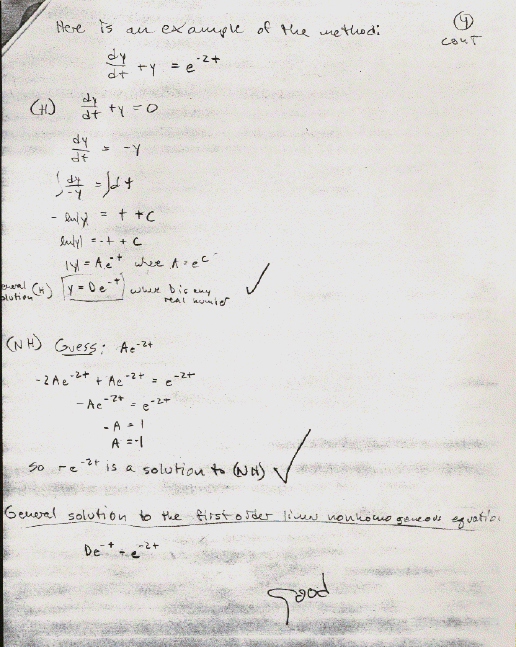 Here is an example of the method:
④
CONT
dy/dt + y = e^-2t
(H) dy/dt + y = 0
dy/dt = -y
∫ dy/-y = ∫dt
- ln|y| = t + C
ln|y| = -t + C
|y| = Ae^-t where A = e^C
eneral olution (H) y = De^-t where D is any real number
(NH) Guess: Ae^-2t
-2Ae^-2t + Ae^-2t = e^-2t
-Ae^-2t = e^-2t
-A = 1
A = -1
So -e^-2t is a solution to (NH)
General solution to the first order linear nonhomogeneous equatio
De^-t - e^-2t
Good